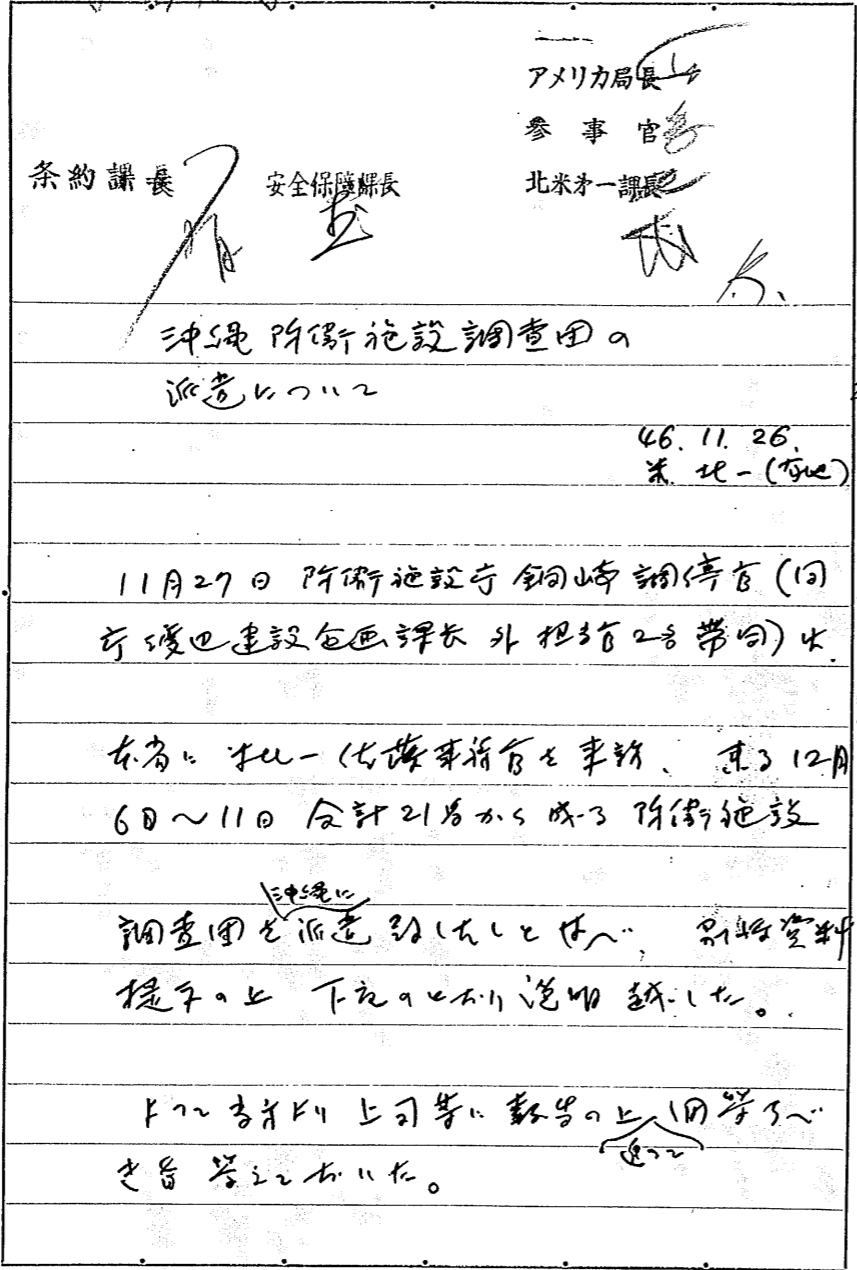 アメリカ局長
参事官
北米才一課長
安全保障課長
条約課長
沖縄防衛施設調査団の
派遣について
46. 11. 26.
米北一
11月27日 防衛施設庁 銅崎調停官(同
庁渡辺建設企画課長外担当官2名帯同)は
本省に米北一佐藤事務官を来訪、来る12月
6日〜11日 合計21名から成る防衛施設
沖縄に
調査団を派遣致したしと述べ、別添資料
提示の上 下記のとおり説明越した。
よって当方より上司等に報告の上回答すべ
追って
き旨答えておいた。